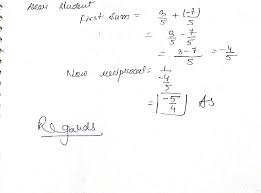 Dear student
First sum = 3/5 + (-7)/5
= 3/5 - 7/5
= 3-7/5 = -4/5
Now reciprocal = 1/(-4/5)
= -5/4 As
Regards